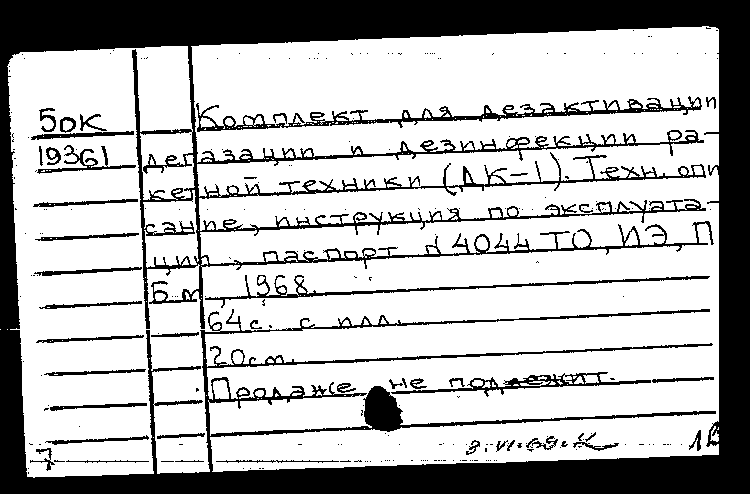 5ок Комплект для дезактивации
19361 дегазации и дезинфекции ра-
кетной техники (ДК-1). Техн. опи
сание, инструкция по эксплуата-
ции, паспорт № 4044 ТО, ИЭ, П
Б.м., 1968.
64с. с илл.
20см.
Продаже не подлежит.
7